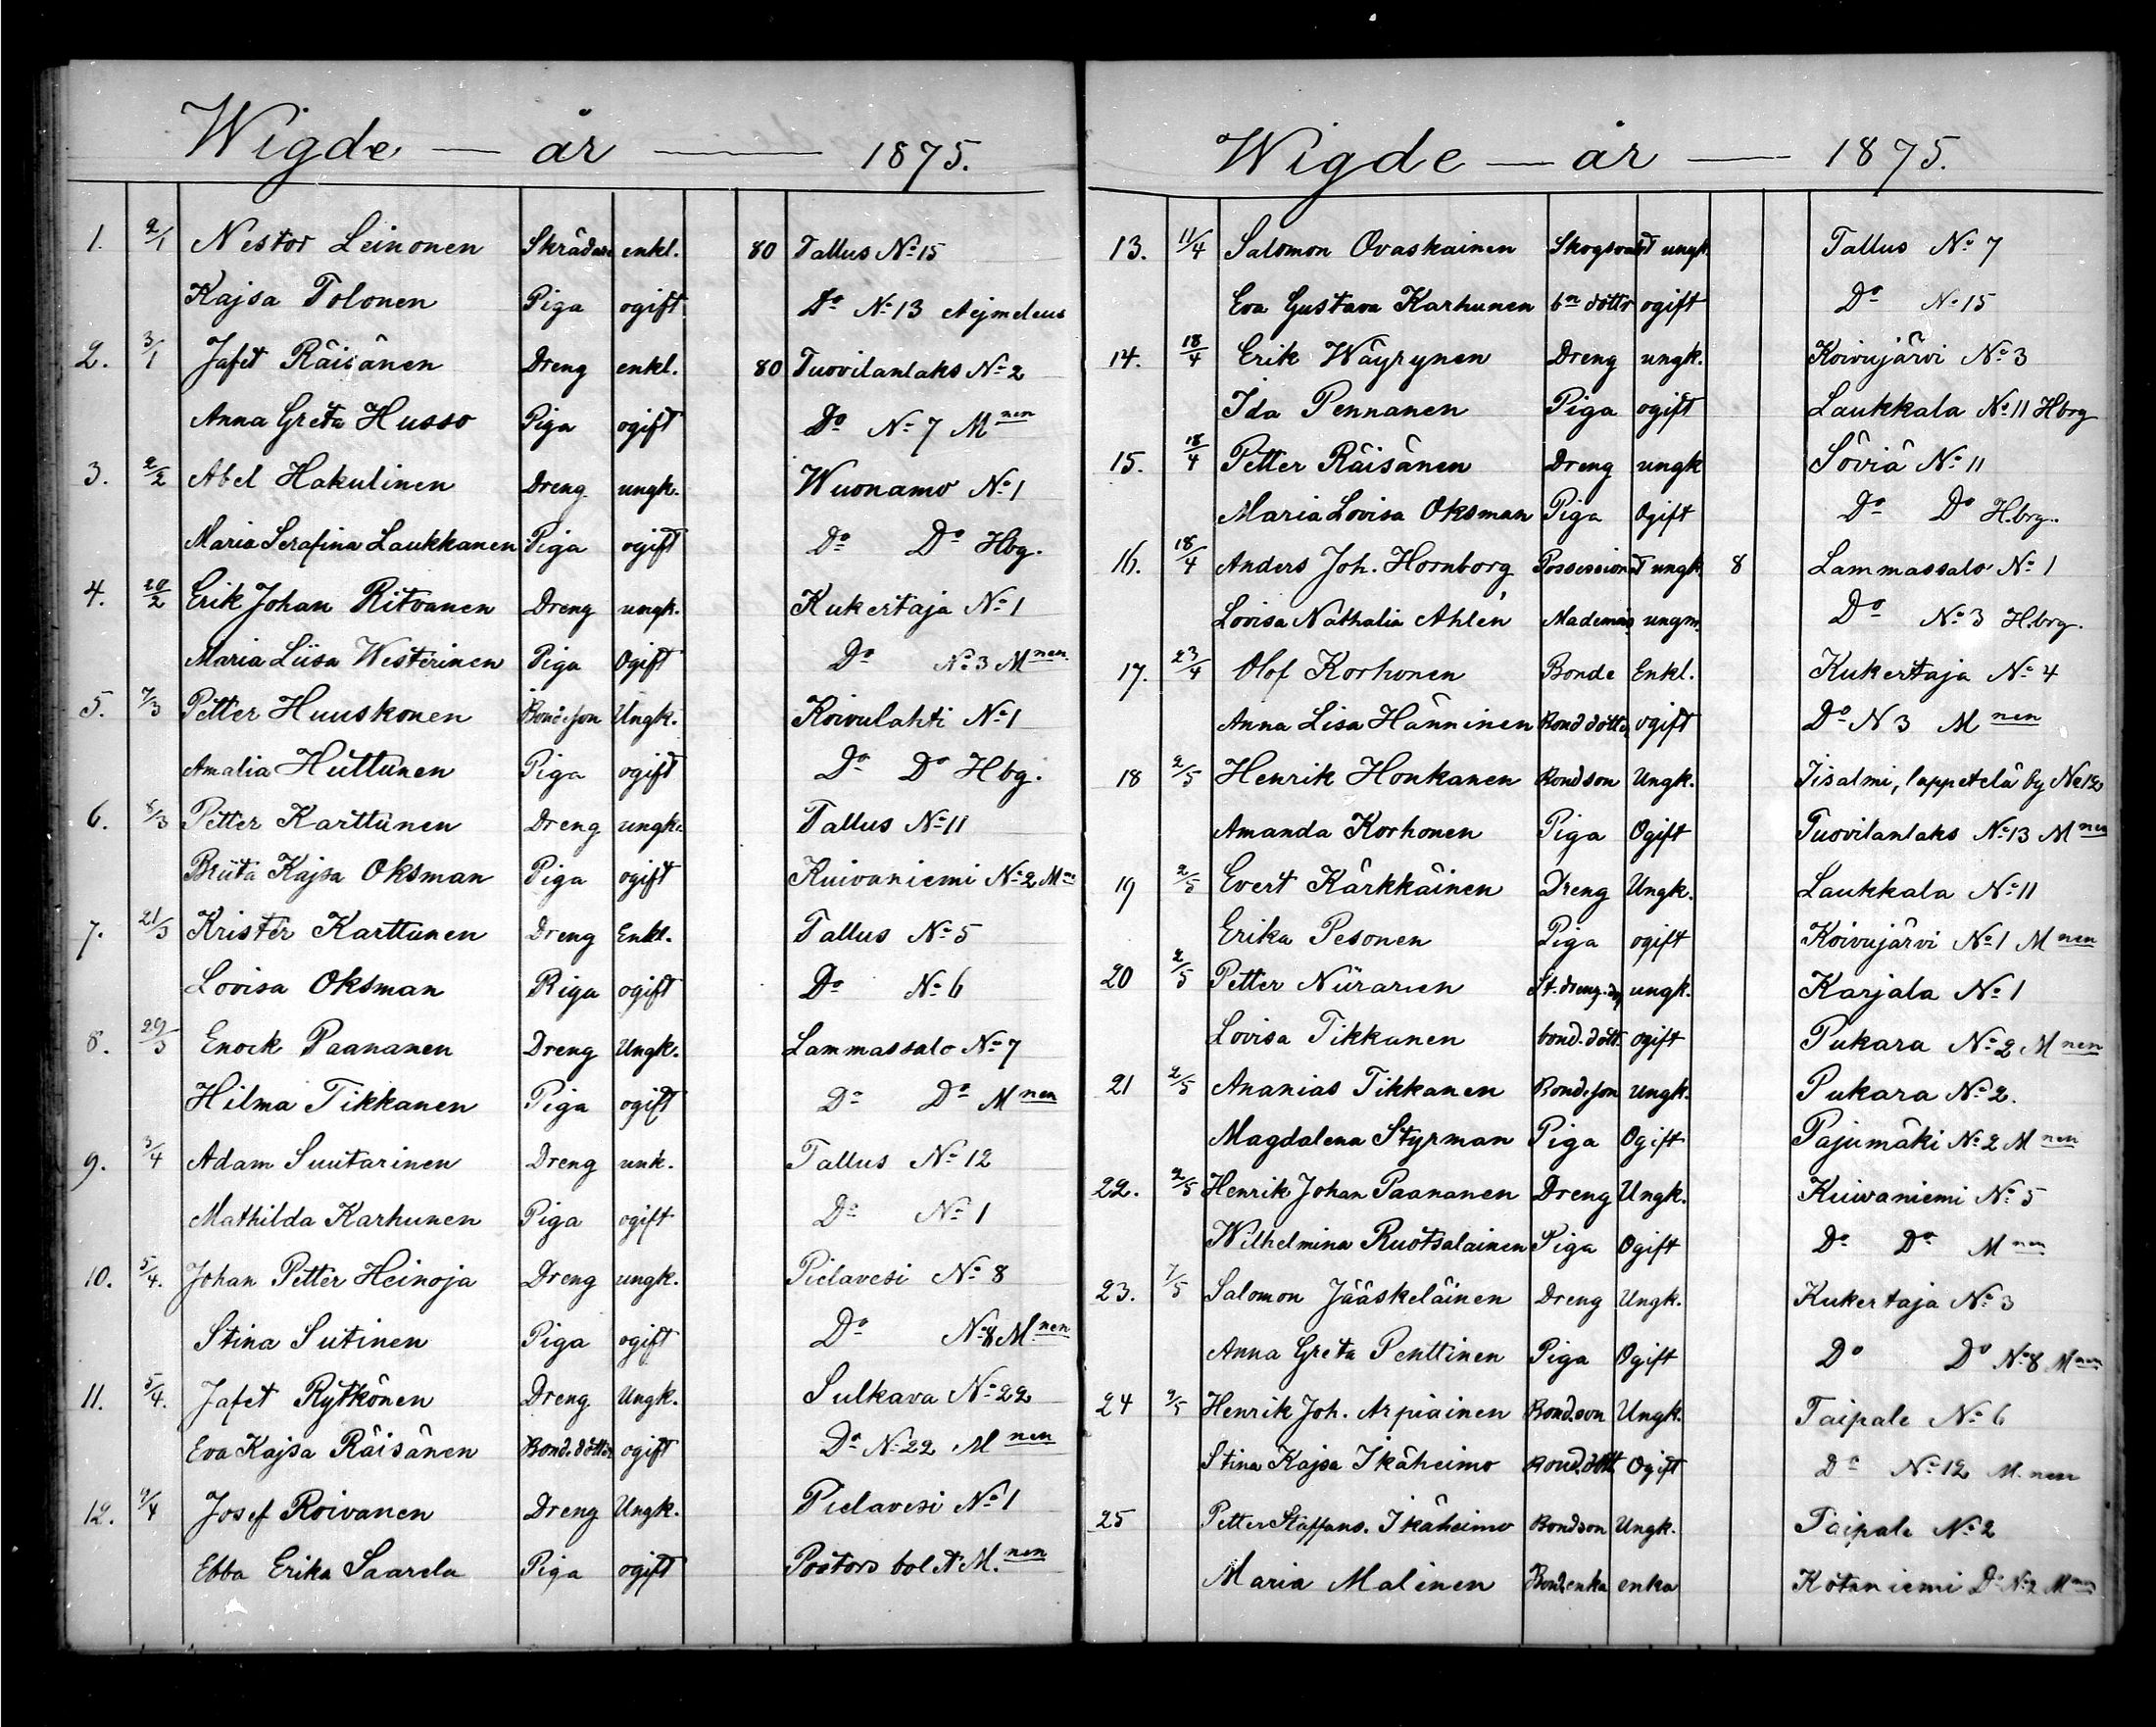 Wigde — år — 1875.
1. 2/1 Nestor Leinonen Skrädare enkl. 80 Tallus No 15
Kajsa Tolonen Piga ogift Do No 13 Aejmeleus
2. 3/1 Jafet Räisänen Dreng enkl. 80 Tuovilanlaks No 2
Anna Greta Husso Piga ogift Do No 7 Mnen
3. 2/2 Abel Hakulinen Dreng ungk. Wuonamo No 1
Maria Serafina Laukkanen Piga ogift Do Do Hbg.
4. 20/2 Erik Johan Ritvanen Dreng ungk. Kukertaja No 1
Maria Liisa Westerinen Piga Ogift Do No 3 Mnen
5. 7/3 Petter Huuskonen Bondeson Ungk. Koivulahti No 1
Amalia Huttunen Piga ogift Do Do Hbg.
6. 8/3 Petter Karttunen Dreng ungk. Tallus No 11
Briita Kajsa Oksman Piga ogift Kuivaniemi No 2 Mnen
7. 21/3 Krister Karttunen Dreng Enkl. Tallus No 5
Lovisa Oksman Piga ogift Do No 6
8. 29/3 Enock Paananen Dreng Ungk. Lammassalo No 7
Hilma Tikkanen Piga ogift Do Do Mnen
9. 3/4 Adam Suutarinen Dreng unk. Tallus No 12
Mathilda Karhunen Piga ogift Do No 1
10. 5/4. Johan Petter Heinoja Dreng ungk. Pielavesi No 8
Stina Sutinen Piga ogift Do No 8 Mnen
11. 5/4. Jafet Rytkönen Dreng Ungk. Sulkava No 22
Eva Kajsa Räisänen Bond.dotter ogift Do No 22 Mnen
12. 9/4 Josef Roivanen Dreng Ungk. Pielavesi No 1
Ebba Erika Saarela Piga ogift Pastors bolet M.nen
Wigde — år — 1875.
13. 11/4 Salomon Ovaskainen Skogsvakt ungk. Tallus No 7
Eva Gustava Karhunen bn dotter ogift Do No 15
14. 18/4 Erik Wäyrynen Dreng ungk. Koivujärvi No 3
Ida Pennanen Piga ogift Laukkala No 11 Hbrg
15. 18/4 Petter Räisänen Dreng ungk Söviä No 11
Maria Lovisa Oksman Piga Ogift Do Do Hbrg.
16. 18/4 Anders Joh. Hornborg Possessionat ungk. 8 Lammassalo No 1
Lovisa Nathalia Ahlén Mademois ungm. Do No 3 Hbrg.
17. 23/4 Olof Korhonen Bonde Enkl. Kukertaja No 4
Anna Lisa Hänninen Bonddotter ogift Do N 3 Mnen
18 2/5 Henrik Honkanen Bondson Ungk. Iisalmi, lappetelä by No 12
Amanda Korhonen Piga Ogift Tuovilanlaks No 13 Mnen
19 2/5 Evert Kärkkäinen Dreng Ungk. Laukkala No 11
Erika Pesonen Piga ogift Koivujärvi No 1 Mnen
20 2/5 Petter Niiranen St.dreng ungk. Karjala No 1
Lovisa Tikkanen bond.dott. ogift Pukara No 2 Mnen
21 2/5 Ananias Tikkanen Bondeson Ungk. Pukara No 2.
Magdalena Styrman Piga Ogift Pajumäki No 2 Mnen
22. 2/5 Henrik Johan Paananen Dreng Ungk. Kuivaniemi No 5
Wilhelmina Ruotsalainen Piga Ogift Do Do Mnen
23. 7/5 Salomon Jääskeläinen Dreng Ungk. Kukertaja No 3
Anna Greta Penttinen Piga Ogift Do Do No 8 Mnen
24 9/5 Henrik Joh. Arpiainen Bondson Ungk. Taipale No 6
Stina Kajsa Ikäheimo Bond.dott. Ogift Do No 12 M.nen
25 Petter Staffans. Ikäheimo Bondson Ungk. Taipale No 2
Maria Malinen Bond.enka enka Kotaniemi Do No 2 Mnen